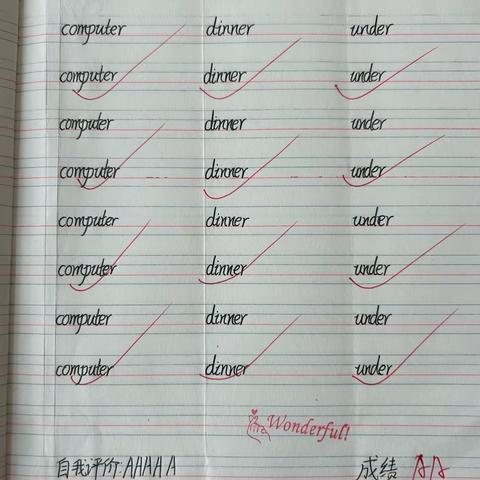 computer dinner under
computer dinner under
computer dinner under
computer dinner under
computer dinner under
computer dinner under
computer dinner under
computer dinner under
Wonderful!
自我评价:AAAAA 成绩 AA